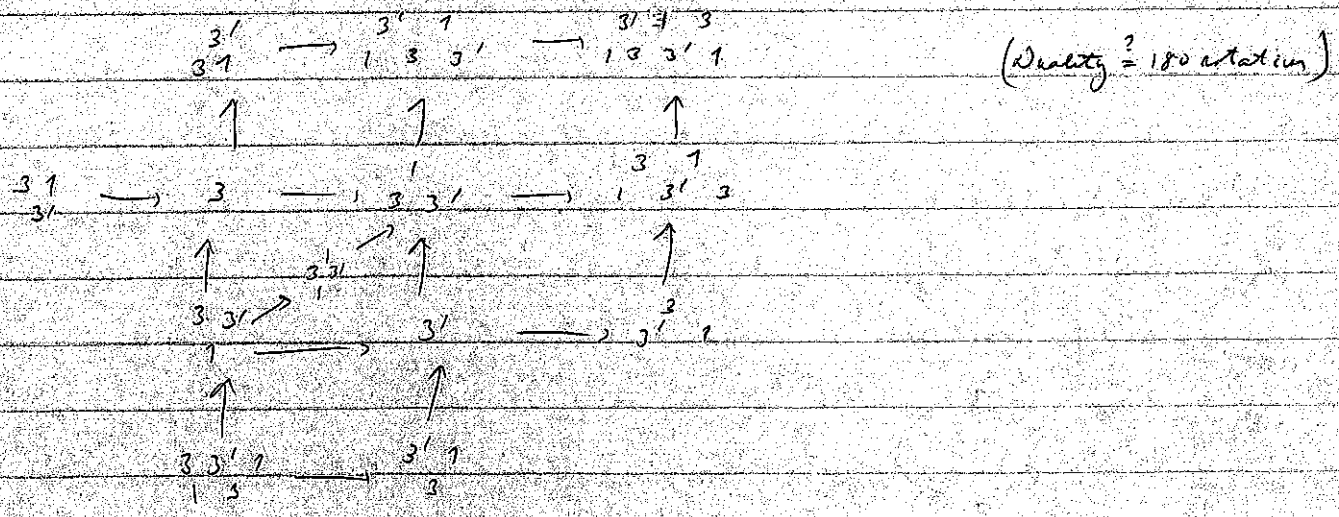 3' 3' 1 3' 1 3
3 1 1 3 3' 1 3 3' 1
(Duality ?= 180 rotation)
3 1 3 1 3 1
3' 3 3' 1 3' 3
1
3 3'
1
3 3' 3' 3
1 3' 1
3 3' 1 3' 1
1 3 3